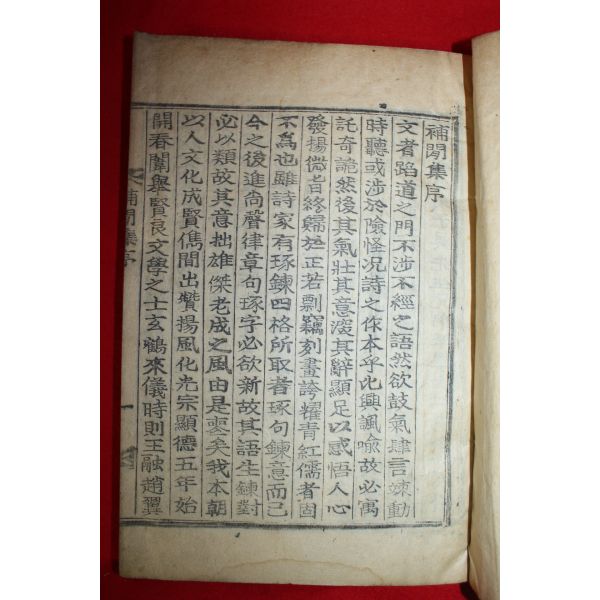 補閒集序
文者蹈道之門不涉不經之語然欲鼓氣肆言竦動
時聽或涉於險怪況詩之作本乎比興諷喩故必寓
託奇詭然後其氣壯其意深其辭顯足以感悟人心
發揚微旨終歸於正若剽竊刻畫誇耀青紅儒者固
不爲也雖詩家有琢鍊四格所取者琢句鍊意而已
今之後進尚聲律章句琢字必欲新故其語生鍊對
必以類故其意拙雄傑老成之風由是衰矣我本朝
以人文化成賢儁間出贊揚風化光宗顯德五年始
開春闈擧賢良文學之士玄鶴來儀時則王融趙翼
補閒集序 一